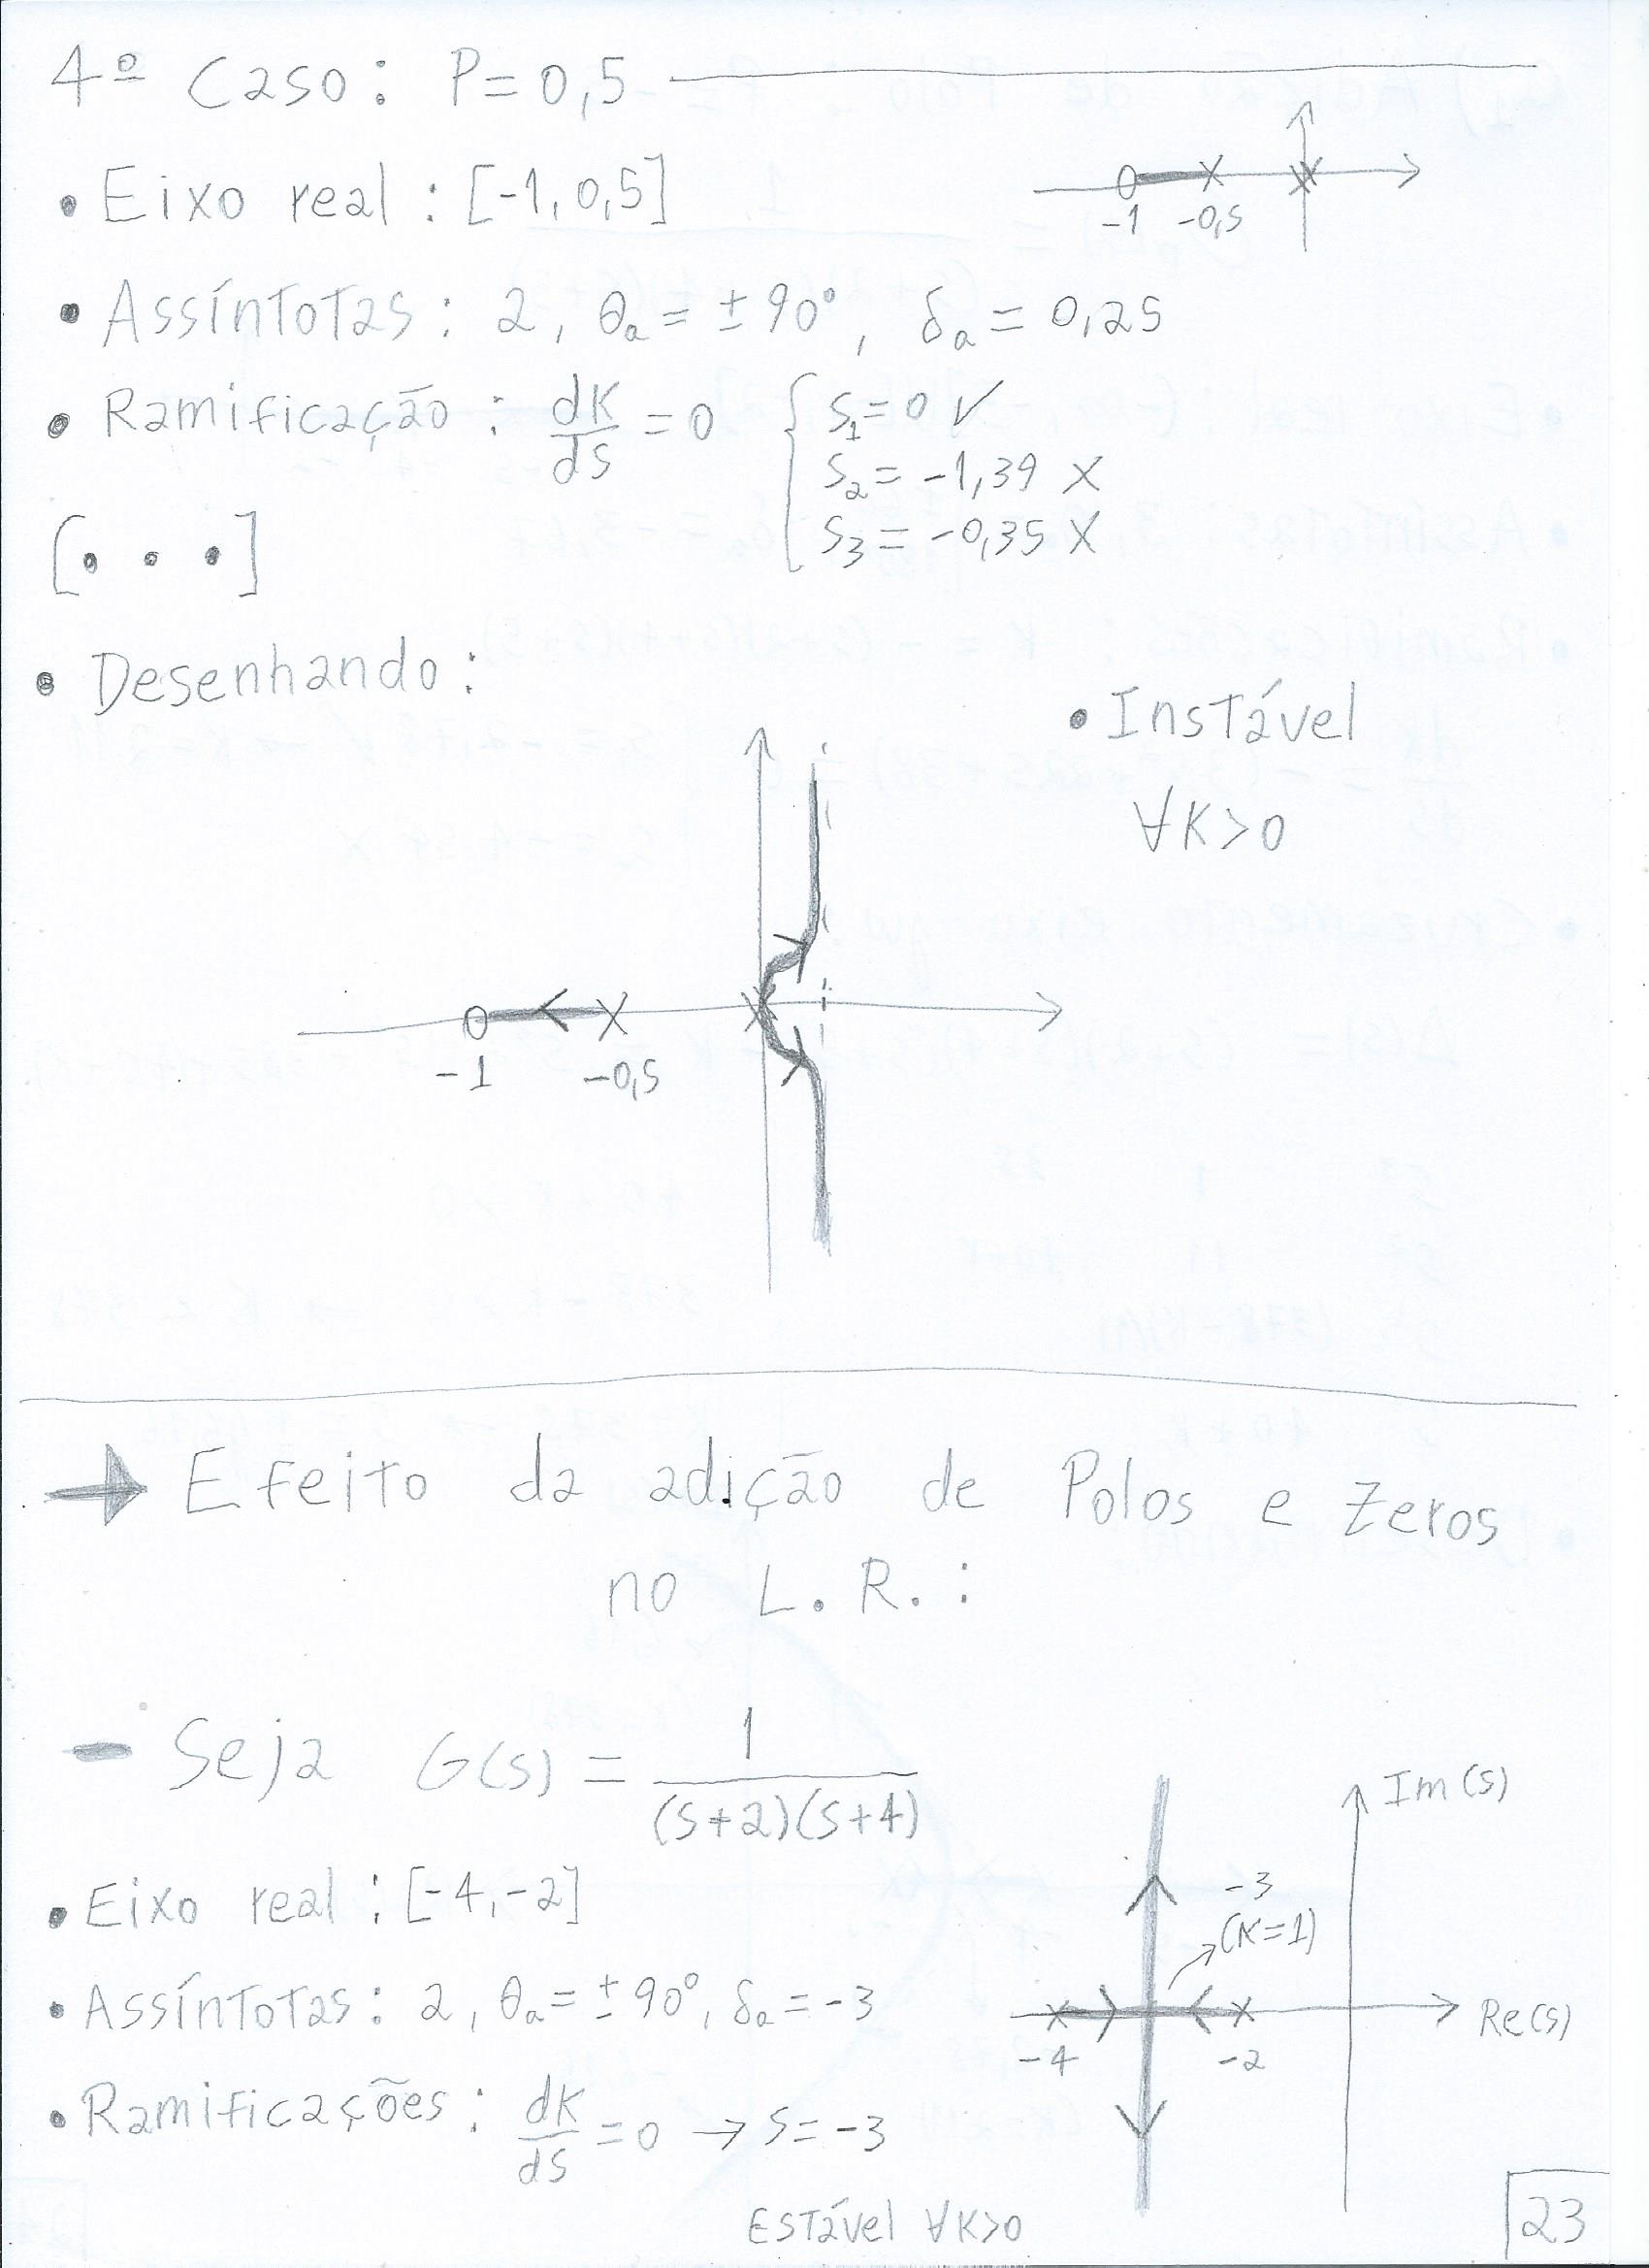 4º Caso: P=0,5
• Eixo real: [-1, 0,5]
-1 -0,5
• Assíntotas: 2, θa = ±90°, δa = 0,25
• Ramificação: dK/ds = 0 { S1=0 ✓
S2= -1,39 X
S3= -0,35 X
[• • •]
• Desenhando:
• Instável
∀K>0
-1 -0,5
→ Efeito da adição de Polos e Zeros
no L.R.:
- Seja G(s) = 1/(s+2)(s+4)
Im(s)
• Eixo real: [-4,-2]
-3
(K=1)
• Assíntotas: 2, θa = ±90°, δa = -3
Re(s)
-4 -2
• Ramificações: dK/ds = 0 → S= -3
Estável ∀K>0
23